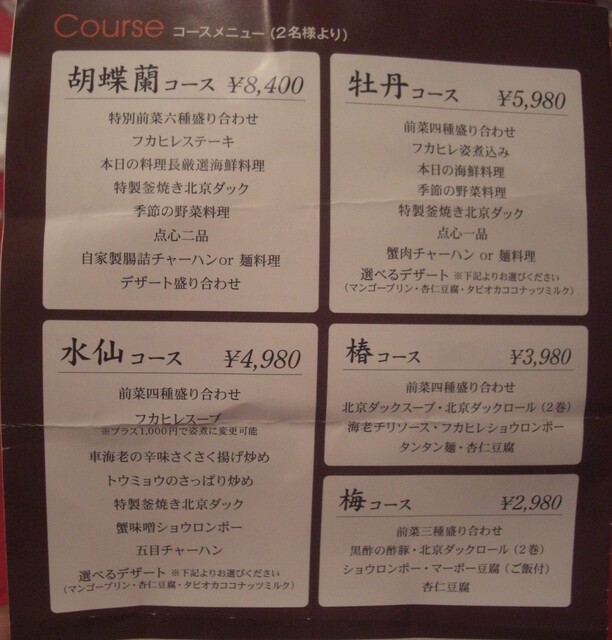 Course コースメニュー（2名様より）
胡蝶蘭コース ¥8,400
特別前菜六種盛り合わせ
フカヒレステーキ
本日の料理長厳選海鮮料理
特製釜焼き北京ダック
季節の野菜料理
点心二品
自家製腸詰チャーハンor 麺料理
デザート盛り合わせ
牡丹コース ¥5,980
前菜四種盛り合わせ
フカヒレ姿煮込み
本日の海鮮料理
季節の野菜料理
特製釜焼き北京ダック
点心一品
蟹肉チャーハン or 麺料理
選べるデザート ※下記よりお選びください
（マンゴープリン・杏仁豆腐・タピオカココナッツミルク）
水仙コース ¥4,980
前菜四種盛り合わせ
フカヒレスープ
※プラス1,000円で姿煮に変更可能
車海老の辛味さくさく揚げ炒め
トウミョウのさっぱり炒め
特製釜焼き北京ダック
蟹味噌ショウロンポー
五目チャーハン
選べるデザート ※下記よりお選びください
（マンゴープリン・杏仁豆腐・タピオカココナッツミルク）
椿コース ¥3,980
前菜四種盛り合わせ
北京ダックスープ・北京ダックロール（2巻）
海老チリソース・フカヒレショウロンポー
タンタン麺・杏仁豆腐
梅コース ¥2,980
前菜三種盛り合わせ
黒酢の酢豚・北京ダックロール（2巻）
ショウロンポー・マーボー豆腐（ご飯付）
杏仁豆腐